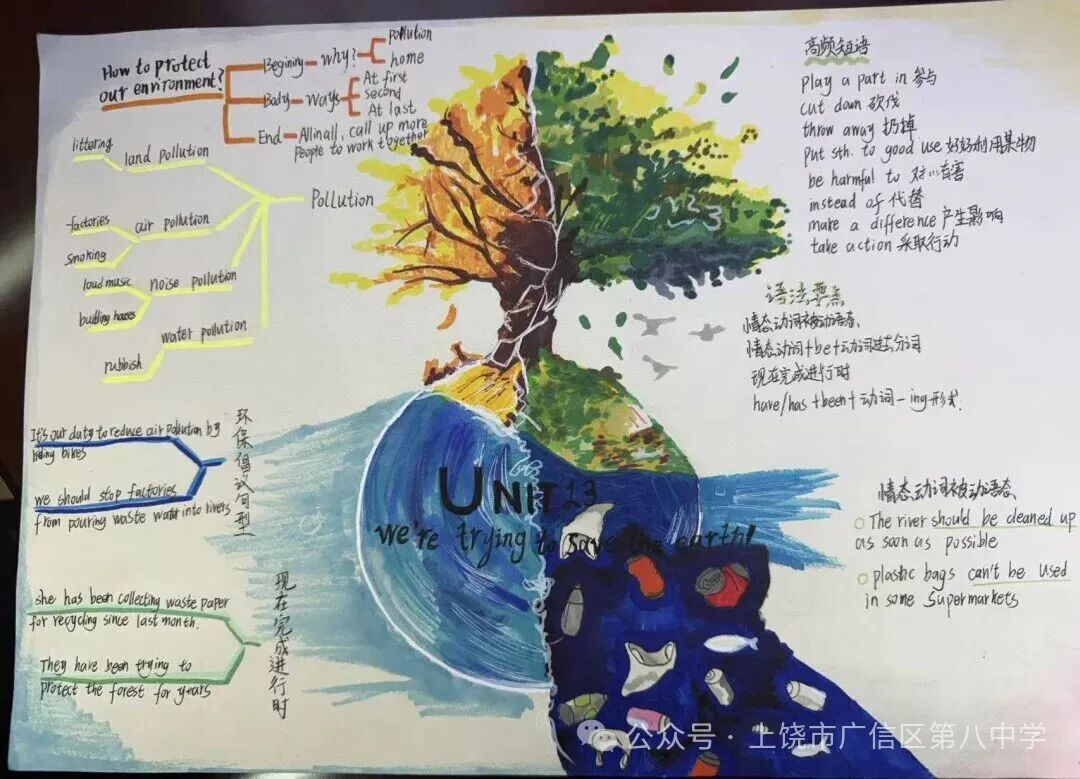 How to protect
our environment?
Begining
why?
pollution
home
Body
ways
At first
second
At last
End
Allinall, call up more
people to work together
Pollution
land pollution
littering
air pollution
factories
smoking
noise pollution
loud music
building houses
water pollution
rubbish
环保倡议句型
It's our duty to reduce air pollution by
riding bikes
we should stop factories
from pouring waste water into rivers
现在完成进行时
she has been collecting waste paper
for recycling since last month.
They have been trying to
protect the forest for years
UNIT 13
we're trying to save the earth!
高频短语
play a part in 参与
cut down 砍伐
throw away 扔掉
put sth. to good use 好好利用某物
be harmful to 对…有害
instead of 代替
make a difference 产生影响
take action 采取行动
语法要点
情态动词被动语态
情态动词+be+动词过去分词
现在完成进行时
have/has +been+ 动词-ing形式.
情态动词被动语态
The river should be cleaned up
as soon as possible
plastic bags can't be used
in some Supermarkets
公众号·上饶市广信区第八中学